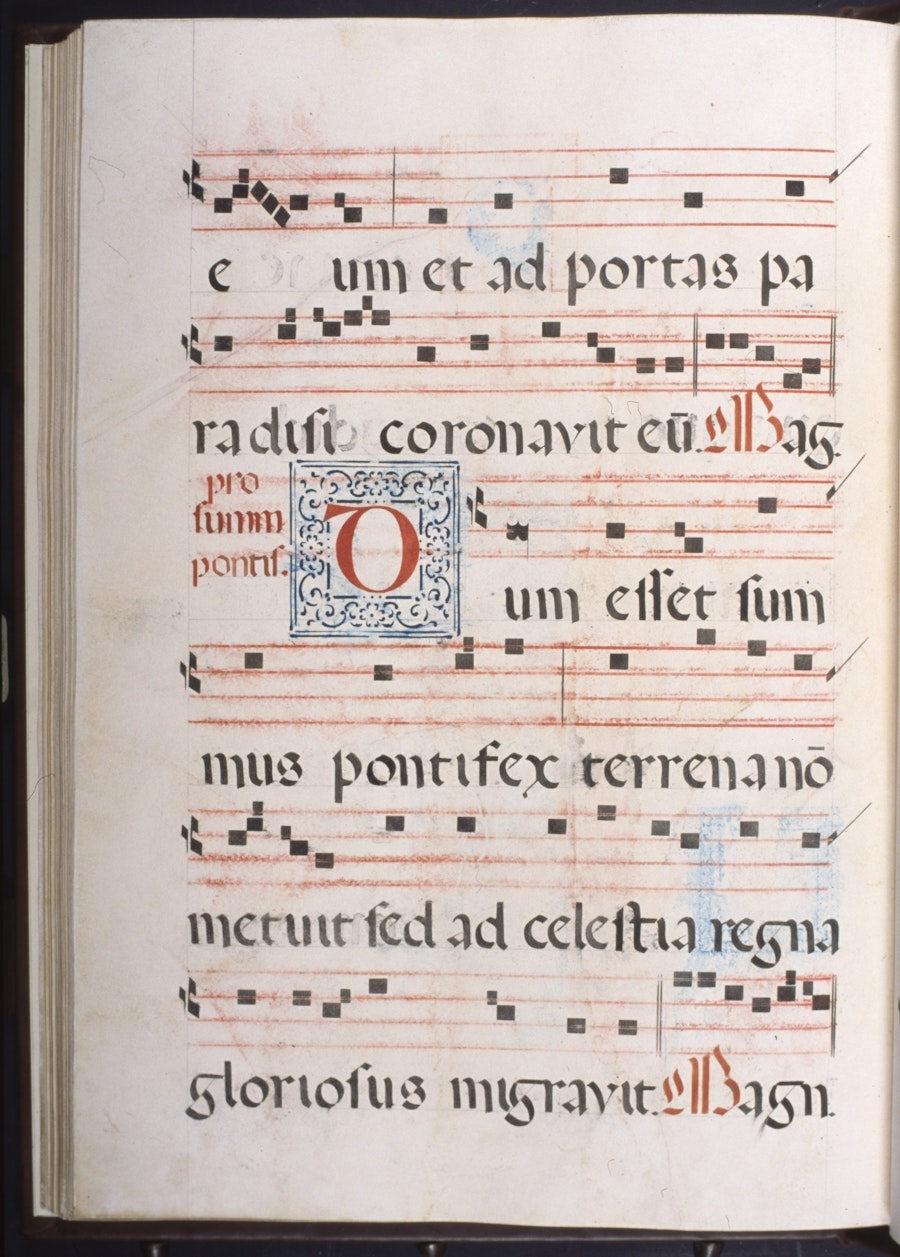 e um et ad portas pa
radisi coronavit eū. Mag.
pro
summ
pontif.
Dum esset sum
mus pontifex terrena nō
metuit sed ad celestia regna
gloriosus migravit. Magn.